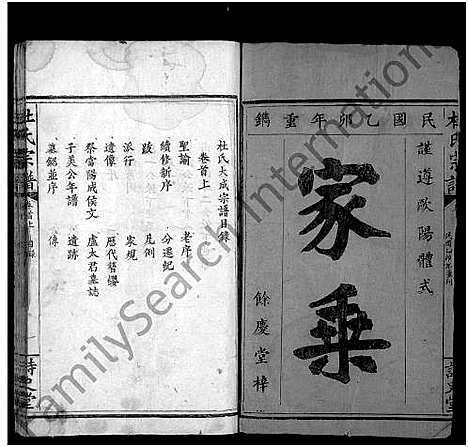 民國乙卯年重鐫
謹遵歐陽體式
家乘
餘慶堂梓
杜氏大成宗譜目錄
卷首上
聖諭 老序
續修新序 分遷紀
跋 凡例
派行 家規
遺像 歷代簪纓
祭當陽成侯文 盧太君墓誌
子美公年譜 遺蹟
墓誌並序 傳
杜氏宗譜
卷首上 目錄
詩史堂
FamilySearch International